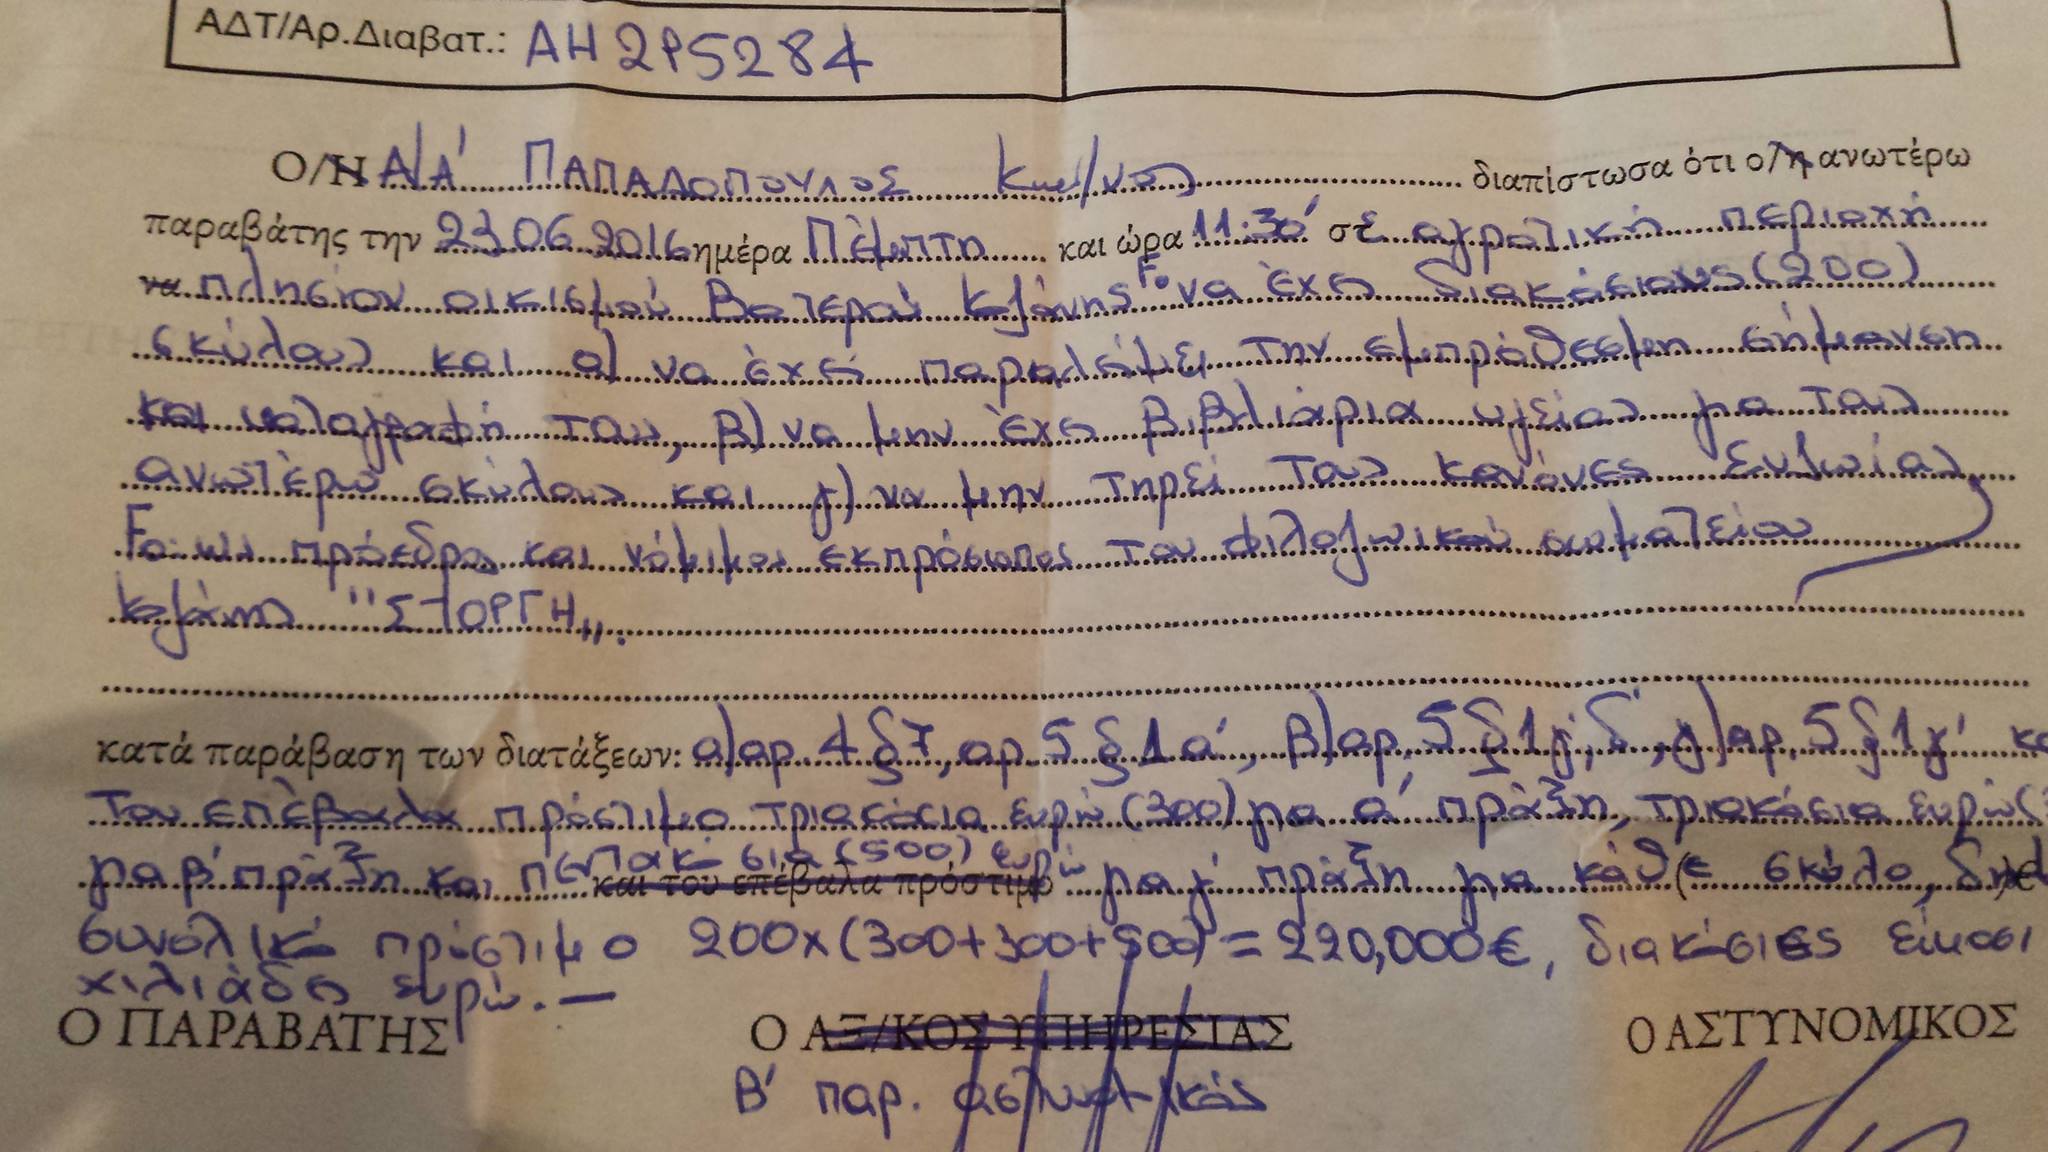 ΑΔΤ/Αρ.Διαβατ.: ΑΗ 295284
Ο/Η Α/Α' ΠΑΠΑΔΟΠΟΥΛΟΣ Κων/νος διαπίστωσα ότι ο/η ανωτέρω
παραβάτης την 23.06.2016 ημέρα Πέμπτη και ώρα 11:30' σε αγροτική περιοχή
να πλησίον οικισμού Βατερού Κοζάνης Fο να έχει διακόσιους (200)
σκύλους και α) να έχει παραλείψει την εμπρόθεσμη σήμανση
και καταγραφή τους, β) να μην έχει βιβλιάρια υγείας για τους
ανωτέρω σκύλους και γ) να μην τηρεί τους κανόνες ευζωίας
Fο: ως πρόεδρος και νόμιμος εκπρόσωπος του φιλοζωικού σωματείου
Κοζάνης "ΣΤΟΡΓΗ".
κατά παράβαση των διατάξεων: α) αρ. 4 §7, αρ. 5 §1 α', β) αρ. 5 §1 γ', δ', γ) αρ. 5 §1 γ' κα
του επέβαλα πρόστιμο τριακόσια ευρώ (300) για α' πράξη, τριακόσια ευρώ (3
για β' πράξη και πεντακόσια (500) ευρώ για γ' πράξη για κάθε σκύλο, δηλ
και του επέβαλα πρόστιμο
συνολικό πρόστιμο 200x(300+300+500) = 220,000€, διακόσιες είκοσι
χιλιάδες ευρώ. —
Ο ΠΑΡΑΒΑΤΗΣ Ο ΑΞ/ΚΟΣ ΥΠΗΡΕΣΙΑΣ Ο ΑΣΤΥΝΟΜΙΚΟΣ
Β' παρ. αστυνομικός